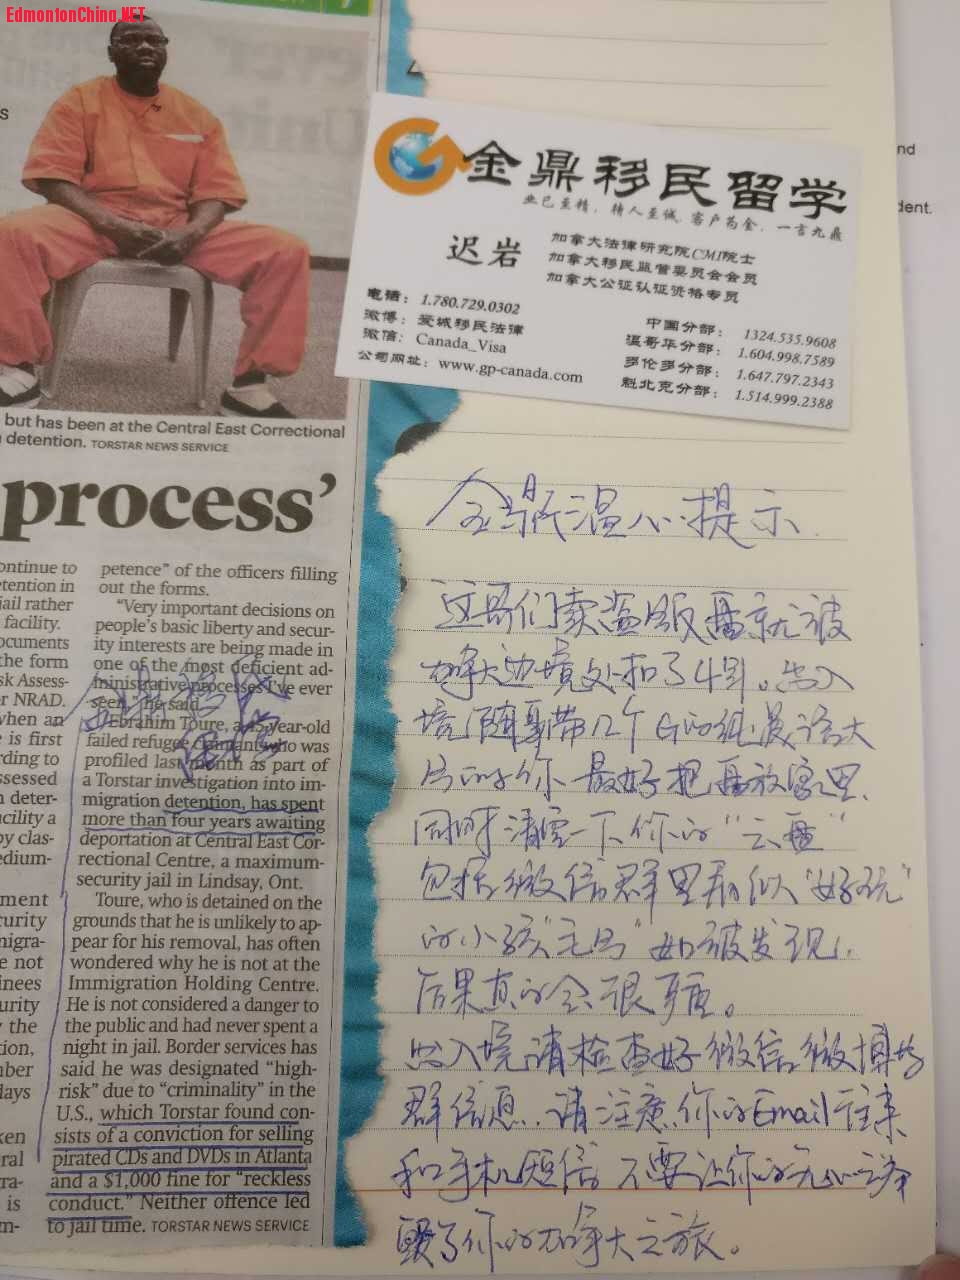 EdmontonChina.NET
s
but has been at the Central East Correctional
detention. TORSTAR NEWS SERVICE
process’
ontinue to
etention in
jail rather
facility.
ocuments
the form
sk Assess-
r NRAD.
when an
e is first
rding to
ssessed
n deter-
acility a
by clas-
edium-
ment
curity
nigra-
e not
inees
urity
y the
tion,
nber
lays
ken
ral
ra-
is
m-
petence” of the officers filling
out the forms.
“Very important decisions on
people’s basic liberty and secur-
ity interests are being made in
one of the most deficient ad-
ministrative processes I’ve ever
seen,” he said.
Ebrahim Toure, a 45-year-old
failed refugee claimant who was
profiled last month as part of
a Torstar investigation into im-
migration detention, has spent
more than four years awaiting
deportation at Central East Cor-
rectional Centre, a maximum-
security jail in Lindsay, Ont.
Toure, who is detained on the
grounds that he is unlikely to ap-
pear for his removal, has often
wondered why he is not at the
Immigration Holding Centre.
He is not considered a danger to
the public and had never spent a
night in jail. Border services has
said he was designated “high-
risk” due to “criminality” in the
U.S., which Torstar found con-
sists of a conviction for selling
pirated CDs and DVDs in Atlanta
and a $1,000 fine for “reckless
conduct.” Neither offence led
to jail time. TORSTAR NEWS SERVICE
nd
dent.
金鼎移民留学
业已至精，精人至诚，客户为金，一言九鼎
迟岩
加拿大法律研究院CMI院士
加拿大移民监管委员会会员
加拿大公证认证资格专员
电话：1.780.729.0302
微博：爱城移民法律
微信：Canada_Visa
公司网址：www.gp-canada.com
中国分部：1324.535.9608
温哥华分部：1.604.998.7589
多伦多分部：1.647.797.2343
魁北克分部：1.514.999.2388
金鼎温心提示
这哥们卖盗版碟就被
加拿大边境处扣了4年。出入
境随身带几个G的纯英语大
片的你最好把碟放家里，
同时清空一下你的“云盘”
包括微信群里看似“好玩”
的小孩“毛片”如被发现，
后果真的会很严重。
出入境请检查好微信微博与
群信息，请注意你的Email往来
和手机短信 不要让你的无心之举
毁了你的加拿大之旅。